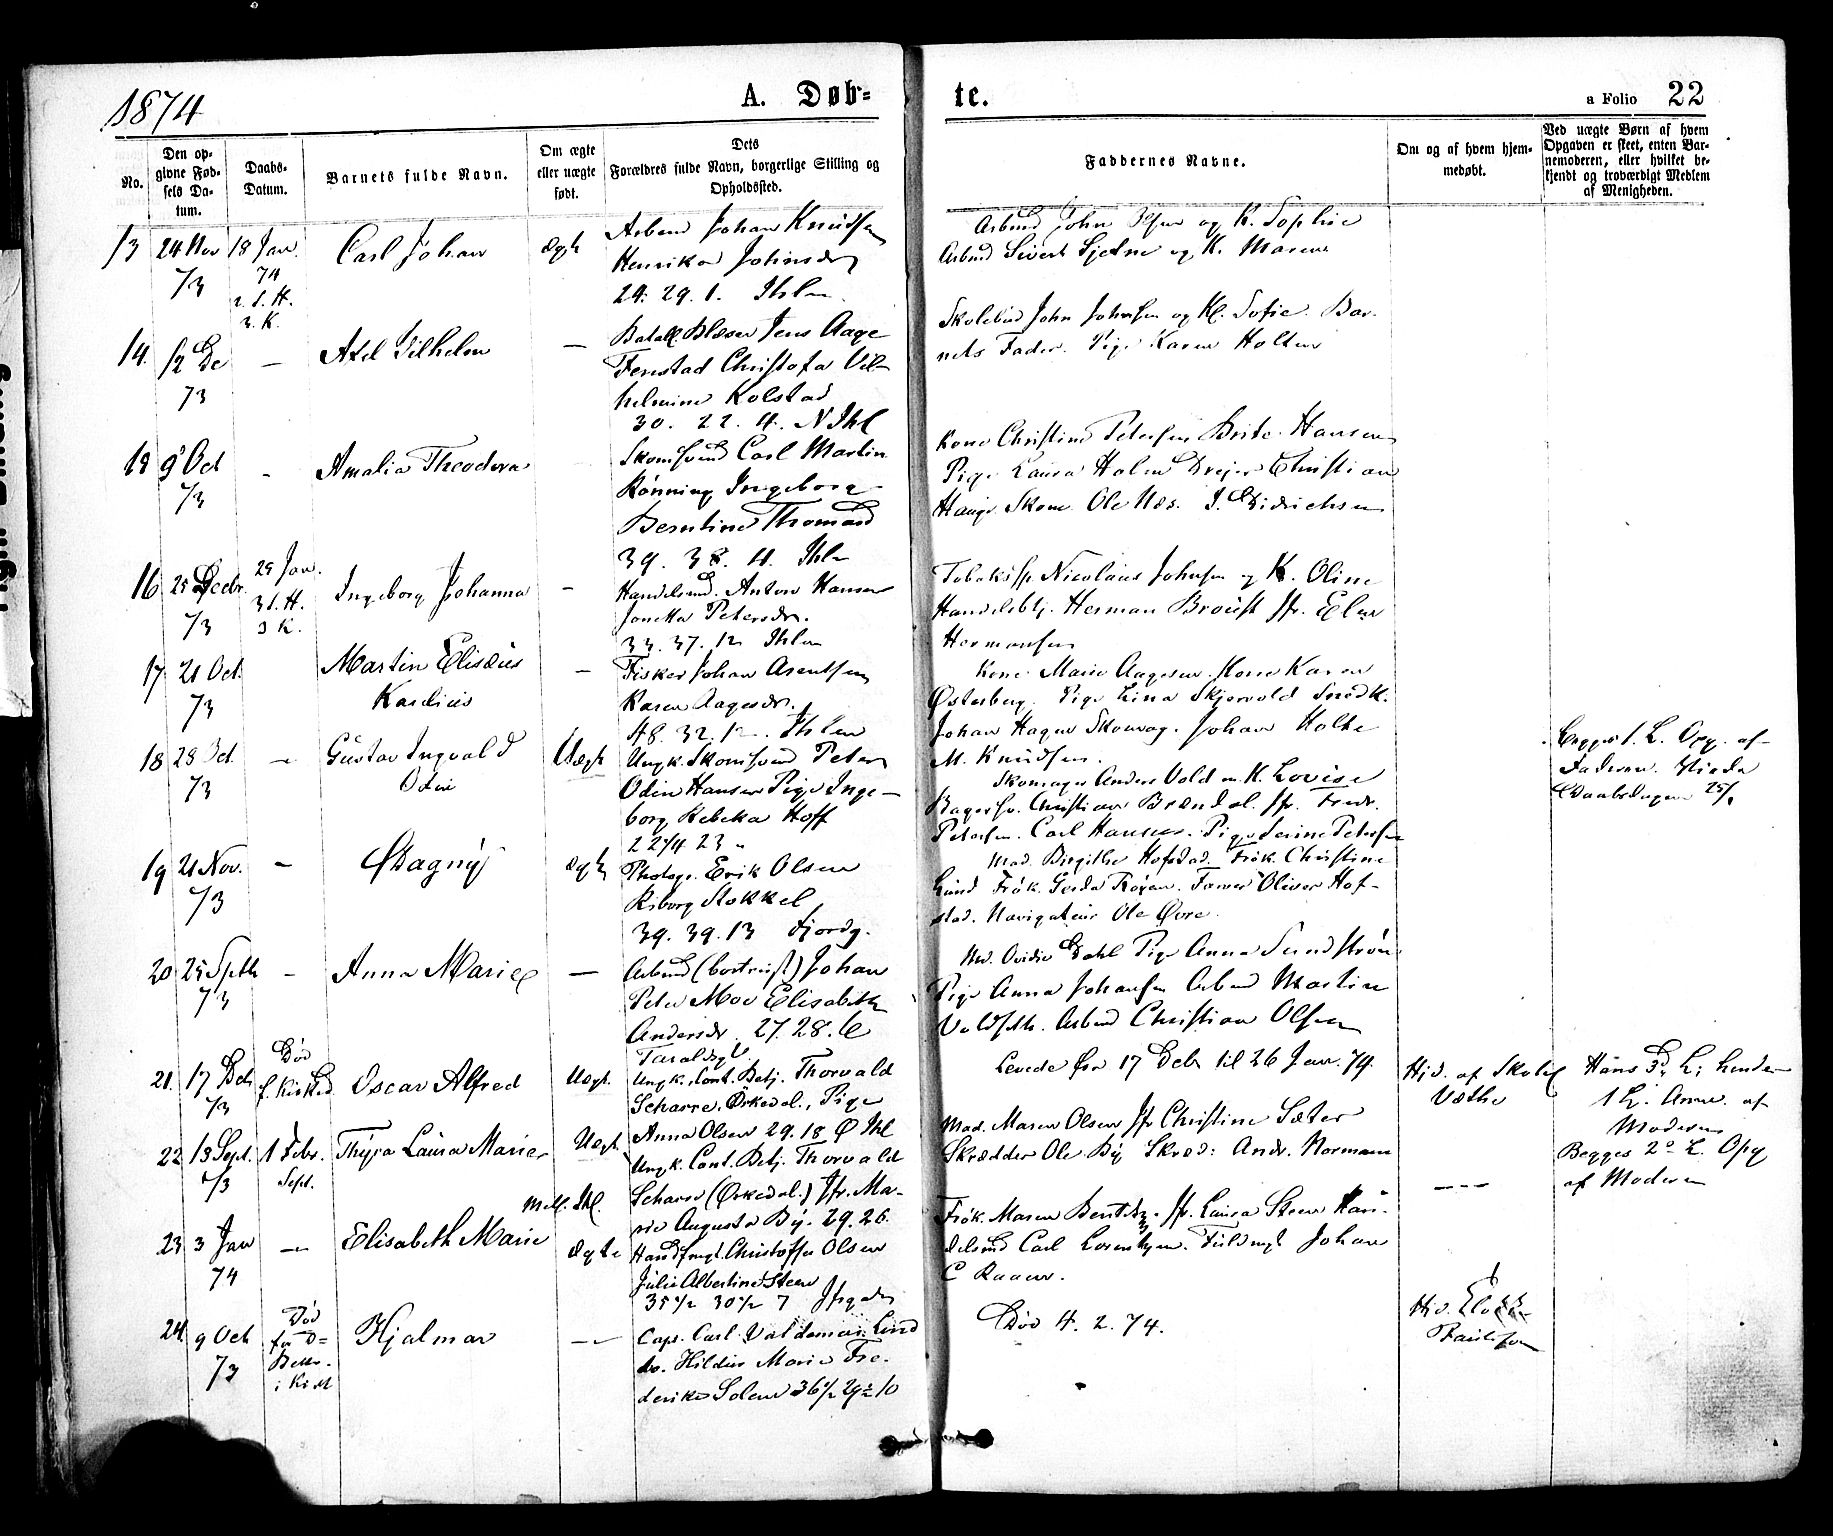 1874
A. Døb=
te.
a Folio 22
No.
Den op-
givne Fød-
sels Da-
tum.
Daabs-
Datum.
Barnets fulde Navn.
Om ægte
eller uægte
født.
Dets
Forældres fulde Navn, borgerlige Stilling og
Opholdssted.
Faddernes Navne.
Om og af hvem hjem-
medøbt.
Ved uægte Børn af hvem
Opgaven er skeet, enten Bar-
nemoderen, eller hvilket be-
kjendt og troværdigt Medlem
af Menigheden.
13 24 Nov 18 Jan. Carl Johan ægte Arbmd Johan Knudsen
73 74 Henrika Johnsdr
24. 29. 1. Ihlen
Arbmd John Olsen og K. Sophie
Arbmd Sivert Sjetne og K. Maren
14. 12 De — Axel Vilhelm — Batall. Blæser Jens Aage
73 Fenstad Christofa Vil-
helmine Kolstad
30. 22. 4. N Ihl
Skolebud John Johnsen og K. Sofie. Bar-
nets Fader. Pige Karen Holten
15 9 Oct - Amalia Theodora Skomsvend Carl Martin
73 Rønning Ingeborg
Berntine Thomasd
39. 38. 4. Ihlen
Kone Christine Petersen Brite Hansen
Pige Laura Holm Drejer Christian
Hauge. Skom. Ole Næs. J. Didrichsen
16 25 Decbr. 25 Jan. Ingeborg Johanna — Handelsmd. Anton Hansen
73 3 S. H. Jonetta Petersdr.
3 K. 33. 37. 12 Ihlen
Tobaksp. Nicolaus Johnsen og K. Oline
Handelsbtj. Herman Broust Jfr. Elen
Hermansen
17 21 Oct. Martin Elisæus — Fisker Johan Arentsen
73 Kaselius Karen Aagesdr.
48. 32. 12. Ihlen
Kone Marie Aagesen Kone Karen
Østerberg. Pige Lina Skjervold Snedk.
Johan Hagen Skomag. Johan Holte
M. Knudsen.
18 23 Oct. — Gustav Ingvald Uægte Ungk. Skomsvend Peter
73 Odin Odin Hansen Pige Inge-
borg Rebeka Hoff
22 1/4 23 "
Skomager Anders Vold og K. Lovise
Bagersv. Christian Brændel. Jfr. Fredr.
Petersen. Carl Hansen. Pige Serine Petersen
Begges 1. L. Opg. af
Faderen. tilstede
Daabsdagen 25/1
19 21 Nov. — Dagny ægte Photogr. Erik Olsen
73 Riborg Stokkel
39. 39. 13 Fjordg.
Mad. Birgithe Hofstad. Frøk. Christine
Lund Frøk. Gerda Røgen. Farver Oliver Hof-
stad. Navigateur Ole Øvre.
20 25 Septb — Anna Marie — Arbmd (bortreist) Johan
73 Peter Moe Elisabeth
Andersdr. 27. 28. 6
Md. Ovidia Dahl Pige Anna Sundstrøm
Pige Anna Johansen Arbmd Martin
Voldseth. Arbmd Christian Olsen
21. 17 Deb Død Oscar Alfred Uægt. Taraldsgt.
73 f. Kirked. Ungk. Cont. Betj. Thorvald
Scharre. Orkedal., Pige
Anna Olsen 29. 18 Ø Ihl
Levede fra 17 Debr til 26 Jan. 74.
Hjd. af
Væthe
Hans 3d, L; hendes
1 L. Anm. af
Moderen
22 13 Sept. 1 Febr. Thyra Laura Marie Uægt. Ungk. Cont. Betj. Thorvald
73 Sept. Scharre (Orkedal.) Jfr. Ma-
Mell. Ihl. rie Augusta By. 29. 26.
Mad. Maren Olsen Jfr Christine Sæter
Skrædder Ole By Skræd: Andr. Normann
---
Begges 2° L. Opg
af Moderen
23 3 Jan — Elisabeth Marie ægte Handlsfmgt. Christoffer Olsen
74 Julie Albertine Steen
35 1/2 30 1/2 7
Frøk. Maren Bentzen. Jfr. Laura Steen Han-
delsmd Carl Lorentzen. Fuldmgt Johan
C Raaen.
24. 9 Oct Død Hjalmar — Capt. Carl Valdemar Lind
73 før D= bo. Hilda Marie Fre-
i Kirk derike Solem 36 1/2 29 1/2 10
Død 4. 2. 74.
Hjd.
Paulsen